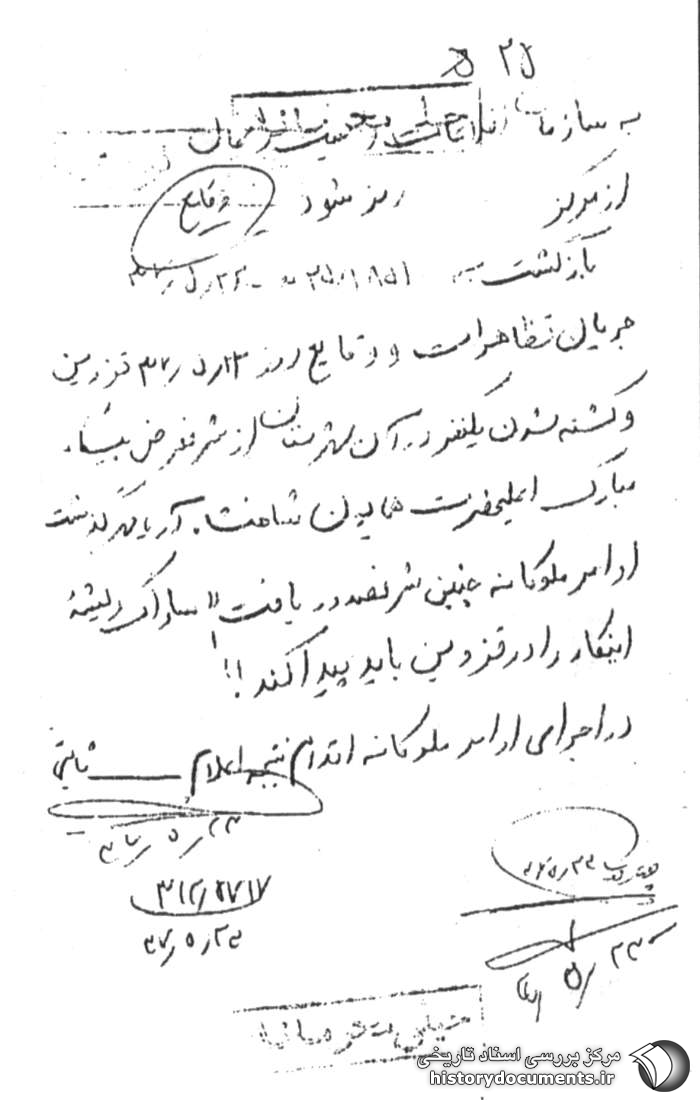 ۲۵ ھ
به سازمان اطلاعات و امنیت
از مرکز رمز شود وقایع
بازگشت به ۲۵۱۸۵۱
جریان تظاهرات و وقایع روز ۳۷٫۵٫۲۳ قزوین
و کشته شدن یکنفر در آن شهرستان از شرفعرض پیشگاه
مبارک اعلیحضرت همایون شاهنشاه آریامهر گذشت
اوامر ملوکانه چنین شرفصدور یافت "ساواک ریشهٔ
اینکار را در قزوین باید پیدا کند"
در اجرای اوامر ملوکانه اقدام نتیجه اعلام ثابتی
۳۷٫۵٫۲۳
۳۱۲٫۴۷۱۷
۳۷٫۵٫۲۳
خیلی
مرکز بررسی اسناد تاریخی
historydocuments.ir